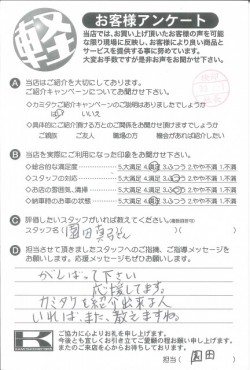 軽
お客様アンケート
当店では、お買い上げ頂いたお客様の声を可能
な限り現場に反映し、お客様により良い商品と
サービスを提供する事に努めています。
大変お手数ですが是非お声をお聞かせ下さい。
A 当店はご紹介を大切にしてあります。
ご紹介キャンペーンについてお聞かせ下さい。
◇カミタケご紹介キャンペーンのご説明はありましたでしょうか
はい いいえ
◇具体的にご紹介頂ける方とのご関係をお聞かせ頂けますでしょうか
ご親族 ご友人 職場の方 機会があれば紹介したい
B 当店を実際にご利用になった印象をお聞かせ下さい。
◇総合的な満足度 5.大満足 4.満足 3.ふつう 2.やや不満 1.不満
◇スタッフの対応 5.大満足 4.満足 3.ふつう 2.やや不満 1.不満
◇お店の雰囲気、清掃 5.大満足 4.満足 3.ふつう 2.やや不満 1.不満
◇納車時のお車の状態 5.大満足 4.満足 3.ふつう 2.やや不満 1.不満
C 評価したいスタッフがいれば教えてください。(複数回答可)
スタッフ名( 園田 さん )
D 担当させて頂きましたスタッフへのご指摘、ご指導メッセージを
お願いします。応援メッセージもぜひお願いします。
がんばって下さい
応援してます。
カミタケを紹介出来る人
いれば、また、教えますね。
K
ご協力に心よりお礼を申し上げます。
今後とも宜しくお引き立てご愛顧の程お願い申し上げます。
またのご来店を心からお待ちしております。
担当( 園田 )